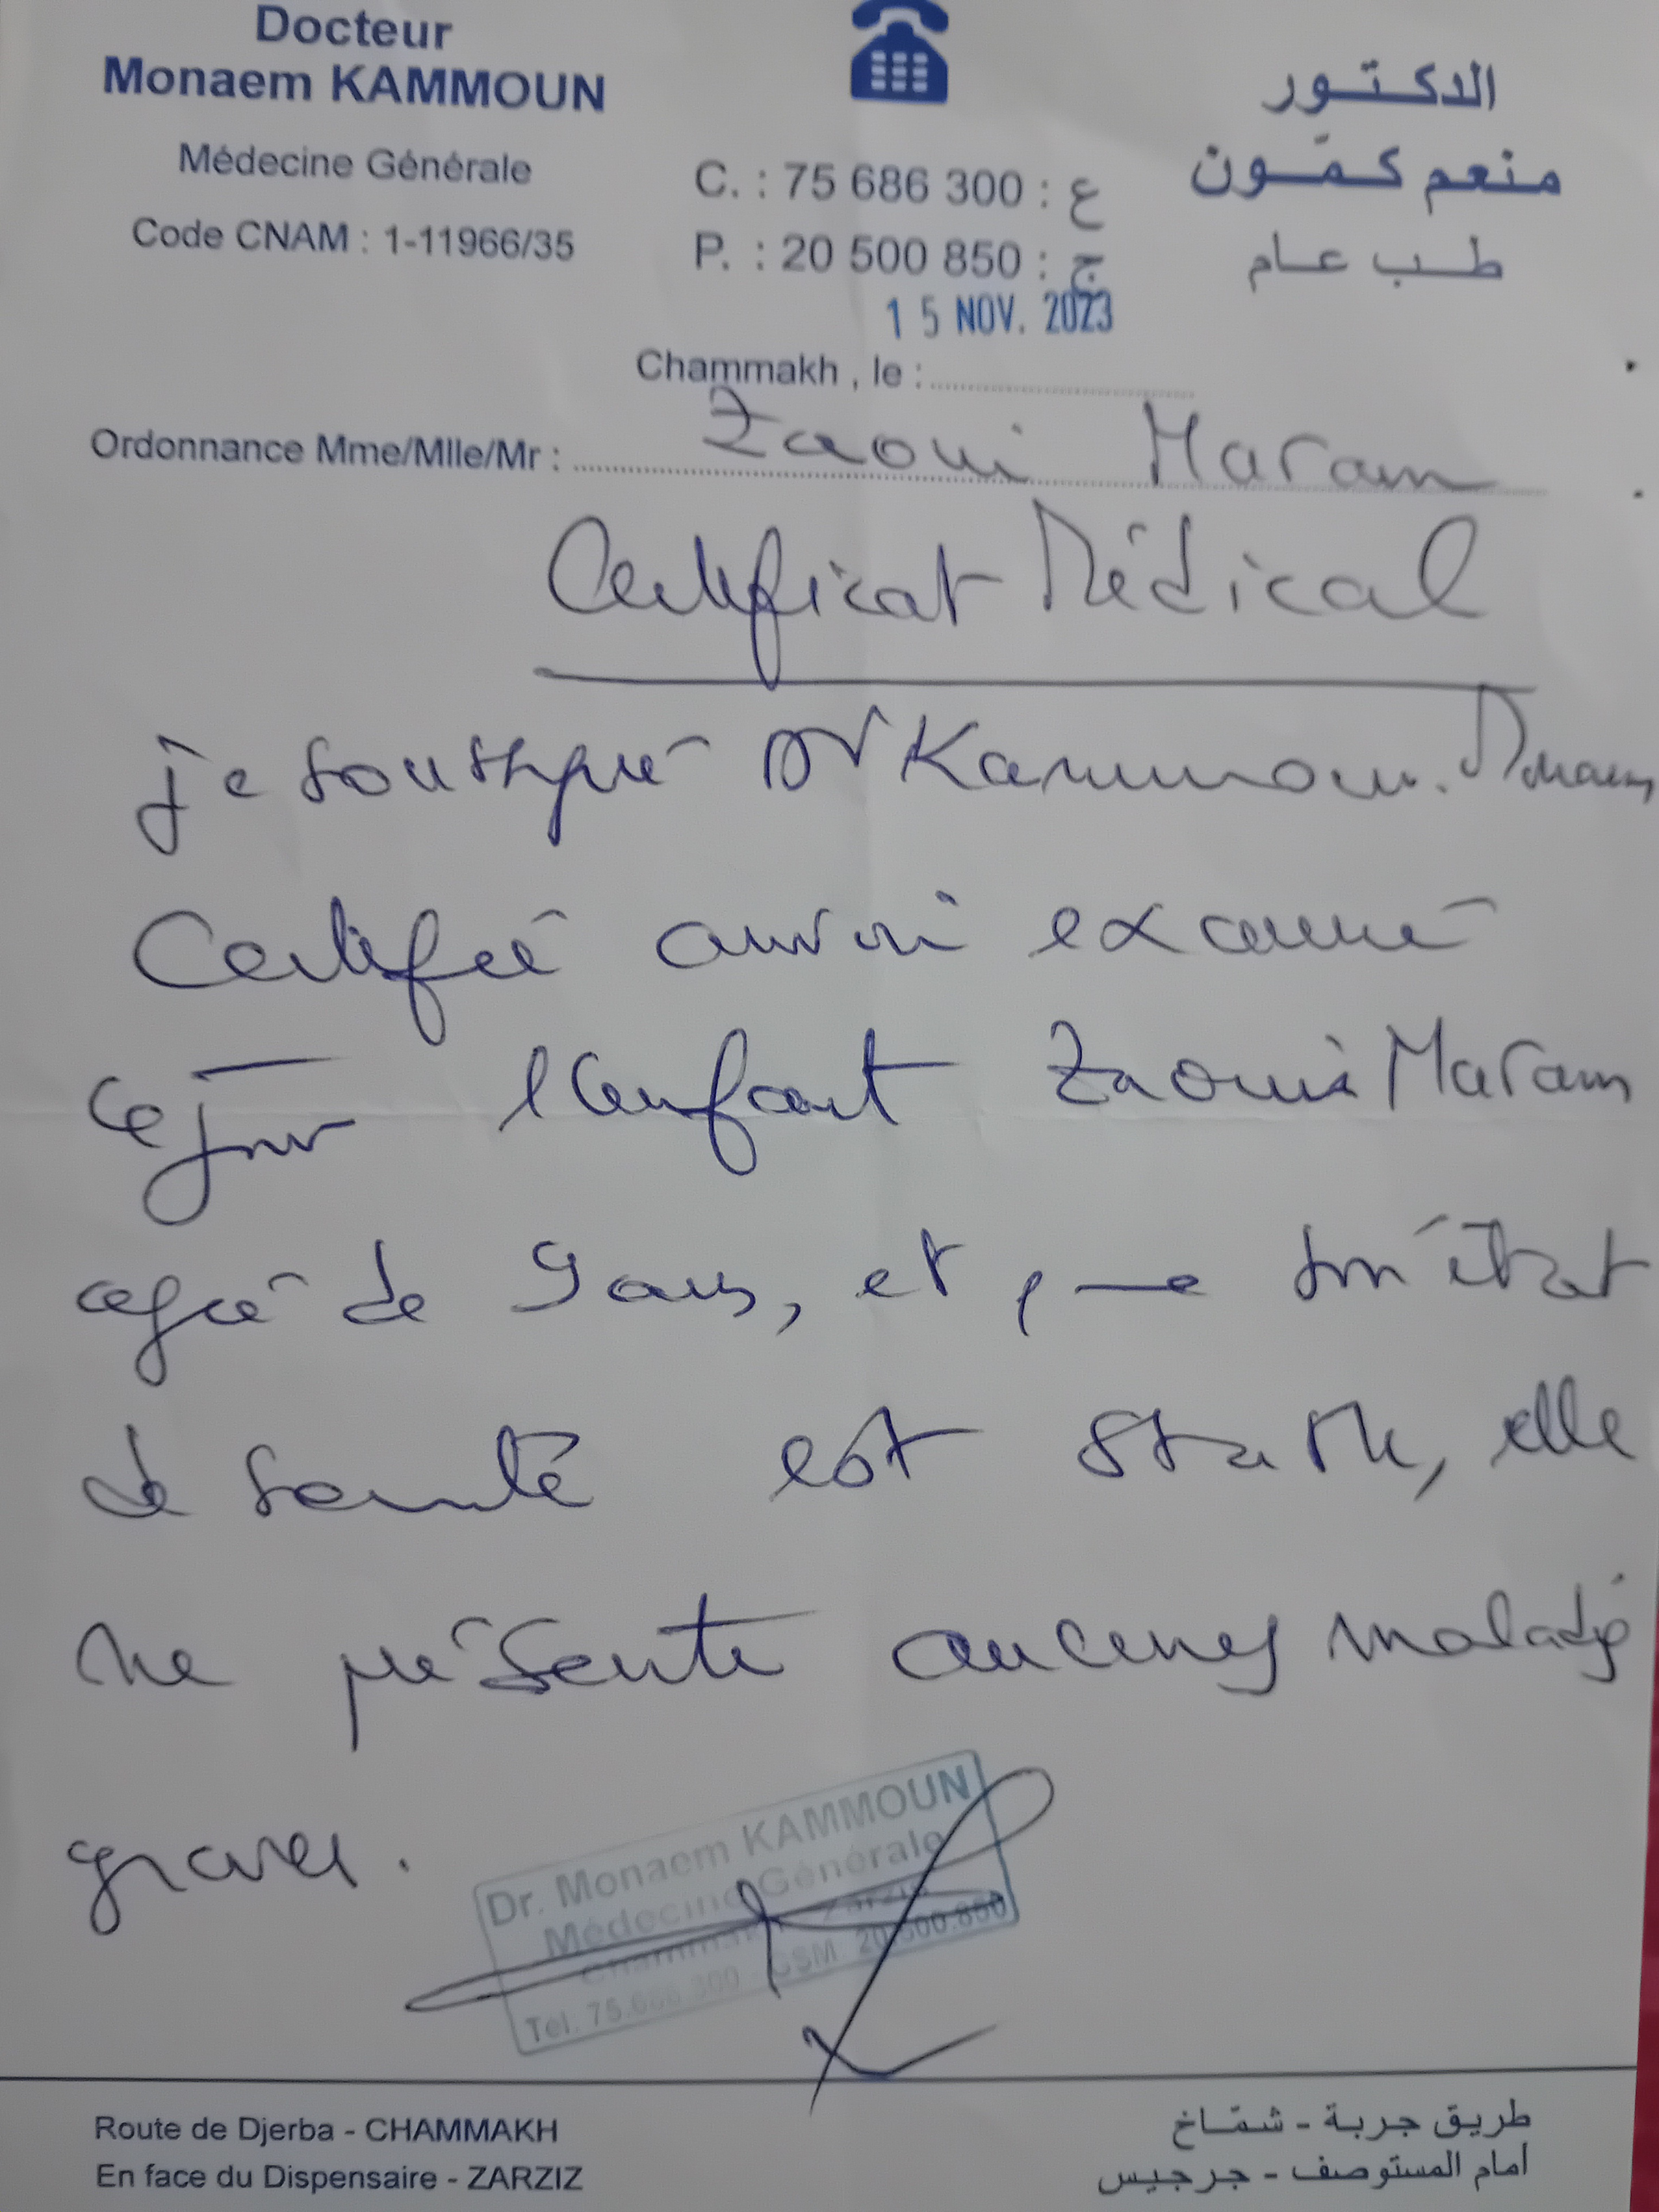 Docteur
Monaem KAMMOUN
Médecine Générale
Code CNAM : 1-11966/35
C. : 75 686 300 : ع
P. : 20 500 850 : ج
الدكتور
منعم كمّون
طب عام
15 NOV. 2023
Chammakh , le :
Ordonnance Mme/Mlle/Mr : Zaoui Maram
Certificat Médical
je soussigné Dr Kammoun. Monaem
Certifié avoir examiné
ce jour l'enfant Zaoui Maram
agée de 9 ans, et que son état
de santé est stable, elle
ne présente aucunes maladies
graves.
Dr. Monaem KAMMOUN
Médecine Générale
Chammakh - Zarzis
Tél. 75.686.300 - GSM: 20.500.850
Route de Djerba - CHAMMAKH
En face du Dispensaire - ZARZIZ
طريق جربة - شمّاخ
أمام المستوصف - جرجيس